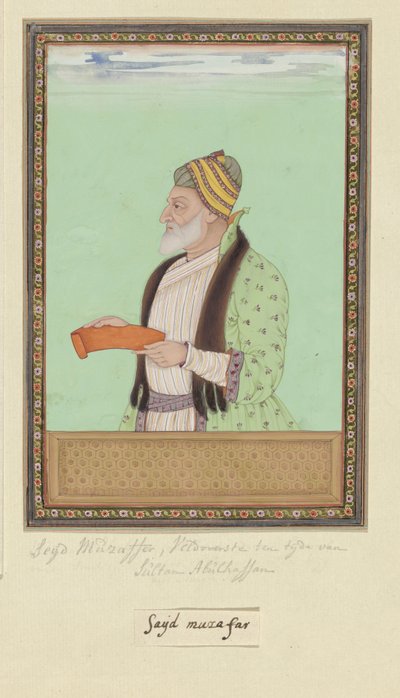 Seÿd Muzaffer, Veldoverste ten tyde van
Sultan Abulhassan
Saÿd muzafar